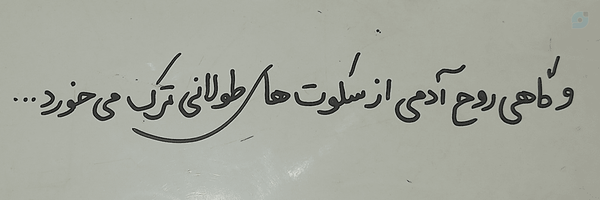 و گاهی روح آدمی از سکوت های طولانی ترک می خورد...